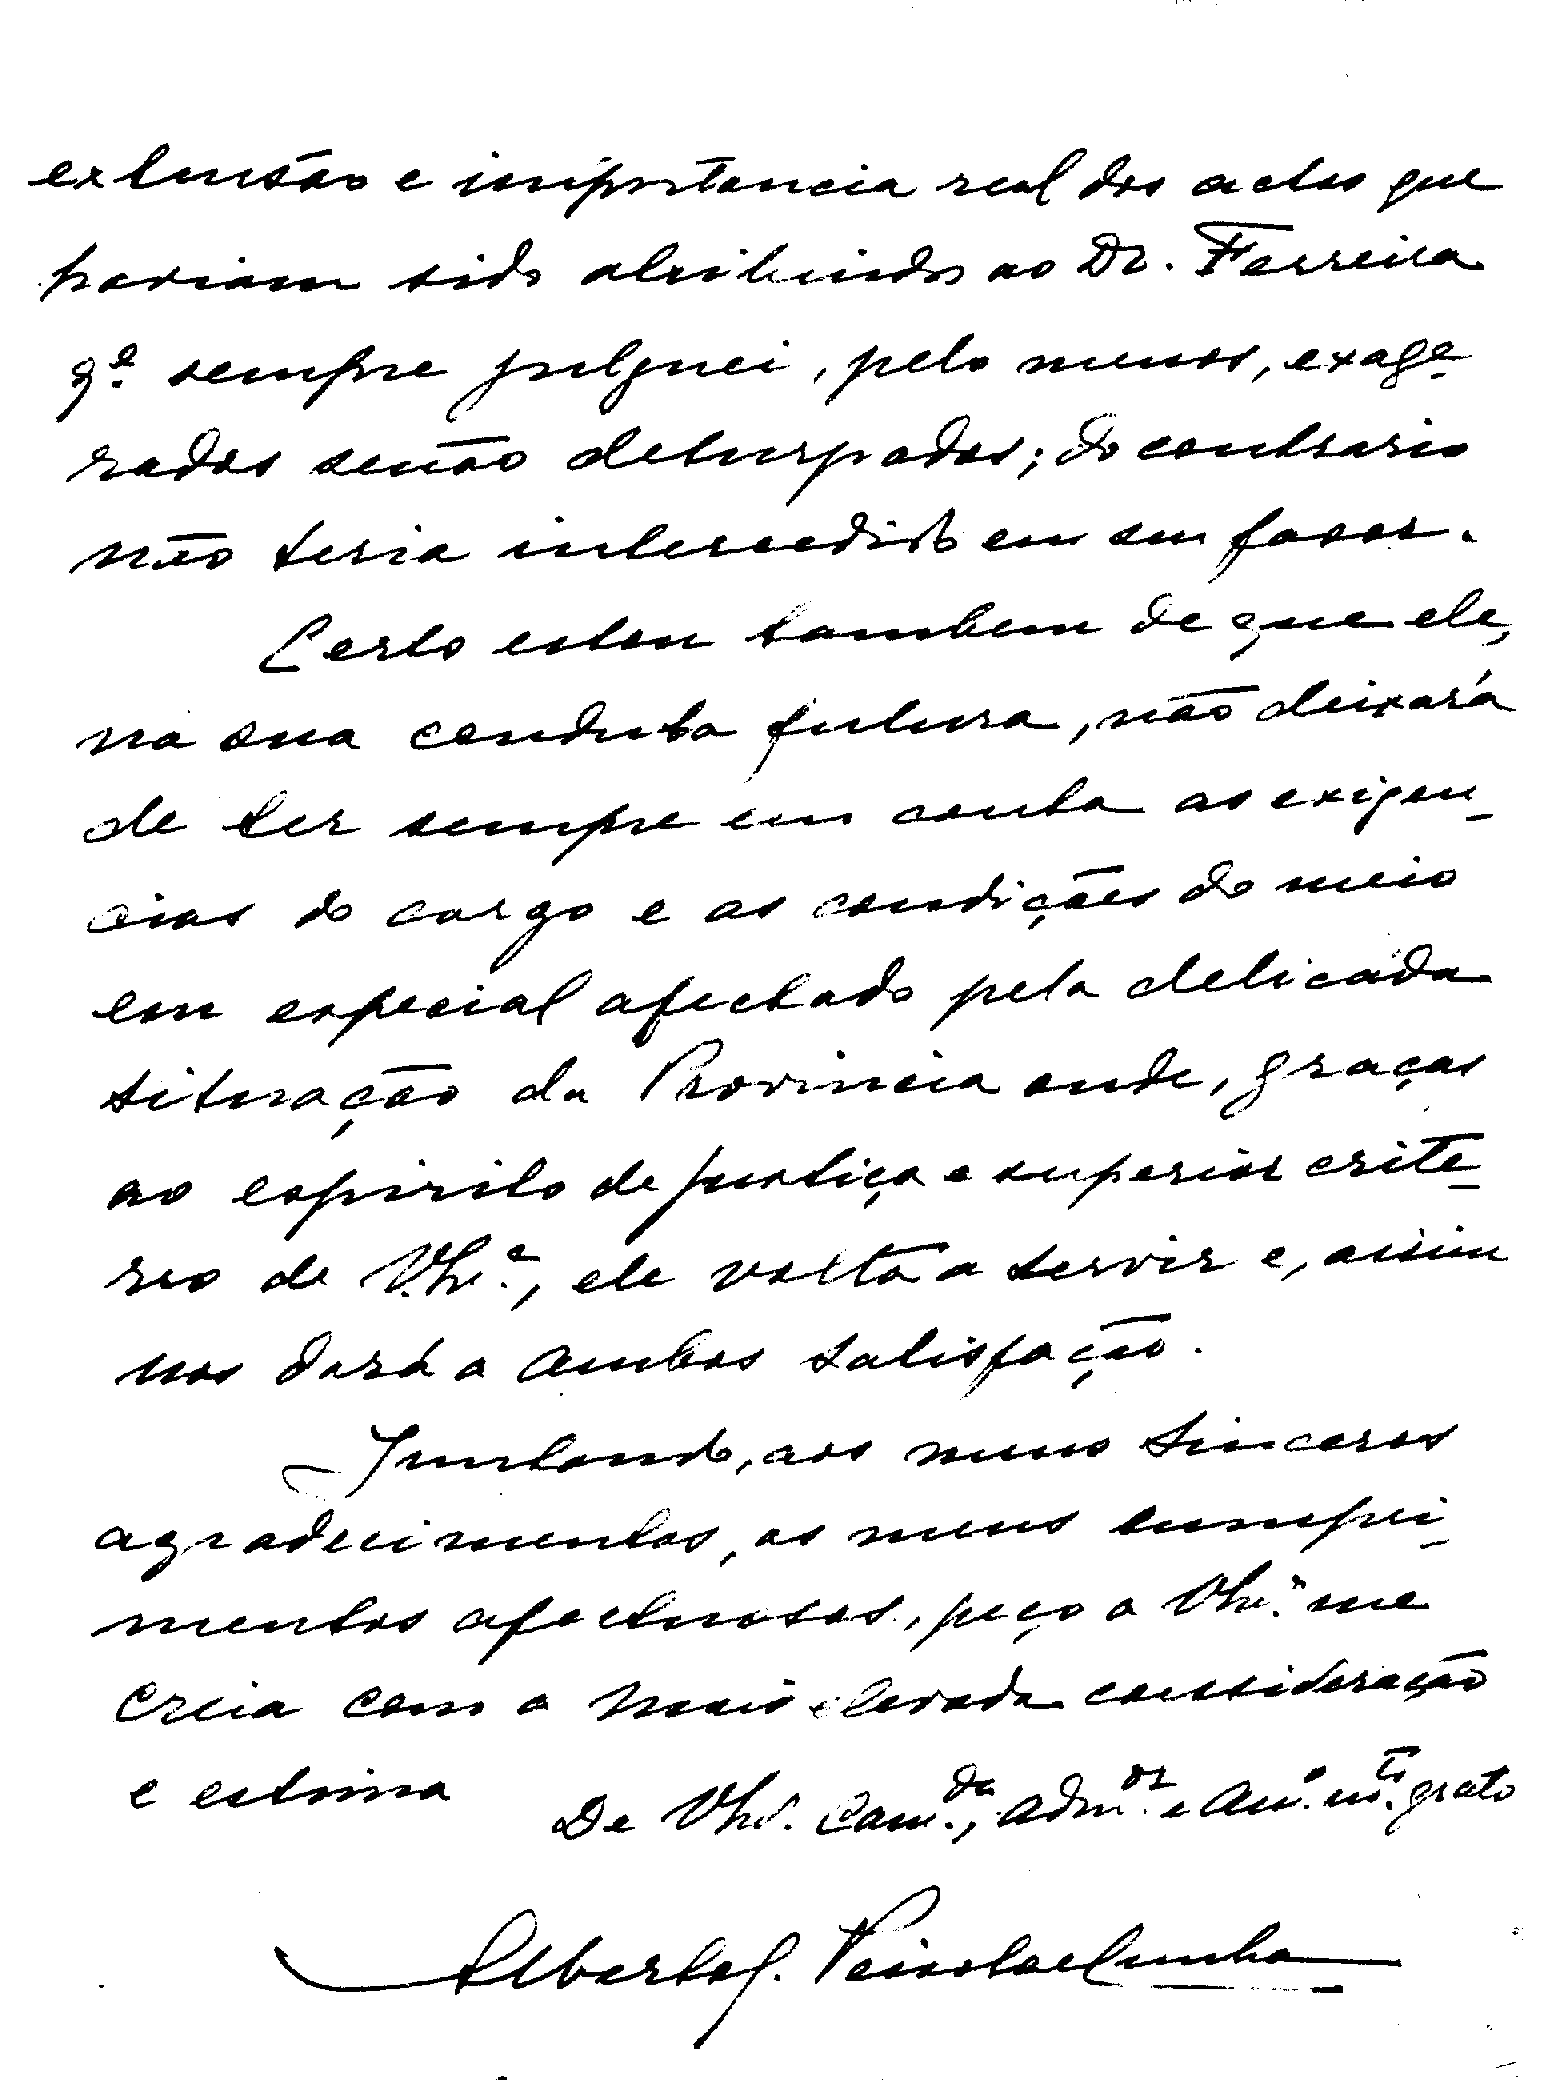 extensão e importancia real dos actos que
haviam sido atribuidos ao Dr. Ferreira
q.e sempre julguei, pelo menos, exage-
rados senão deturpados; do contrario
não teria intercedido em seu favor.
Certo estou tambem de que ele,
na sua conduta futura, não deixará
de ter sempre em conta as exigen-
cias do cargo e as condições do meio
em especial afectado pela delicada
situação da Provincia onde, graças
ao espirito de justiça e superior crite-
rio de V., ele volta a servir e, assim
nos dará a ambos satisfação.
Juntando, aos meus sinceros
agradecimentos, os meus cumpri-
mentos afectuosos, peço a V. me
creia com a mais elevada consideração
e estima
De V. Cam.da, adm.or e am.o m.to grato
Alberto C. Peixoto e Cunha